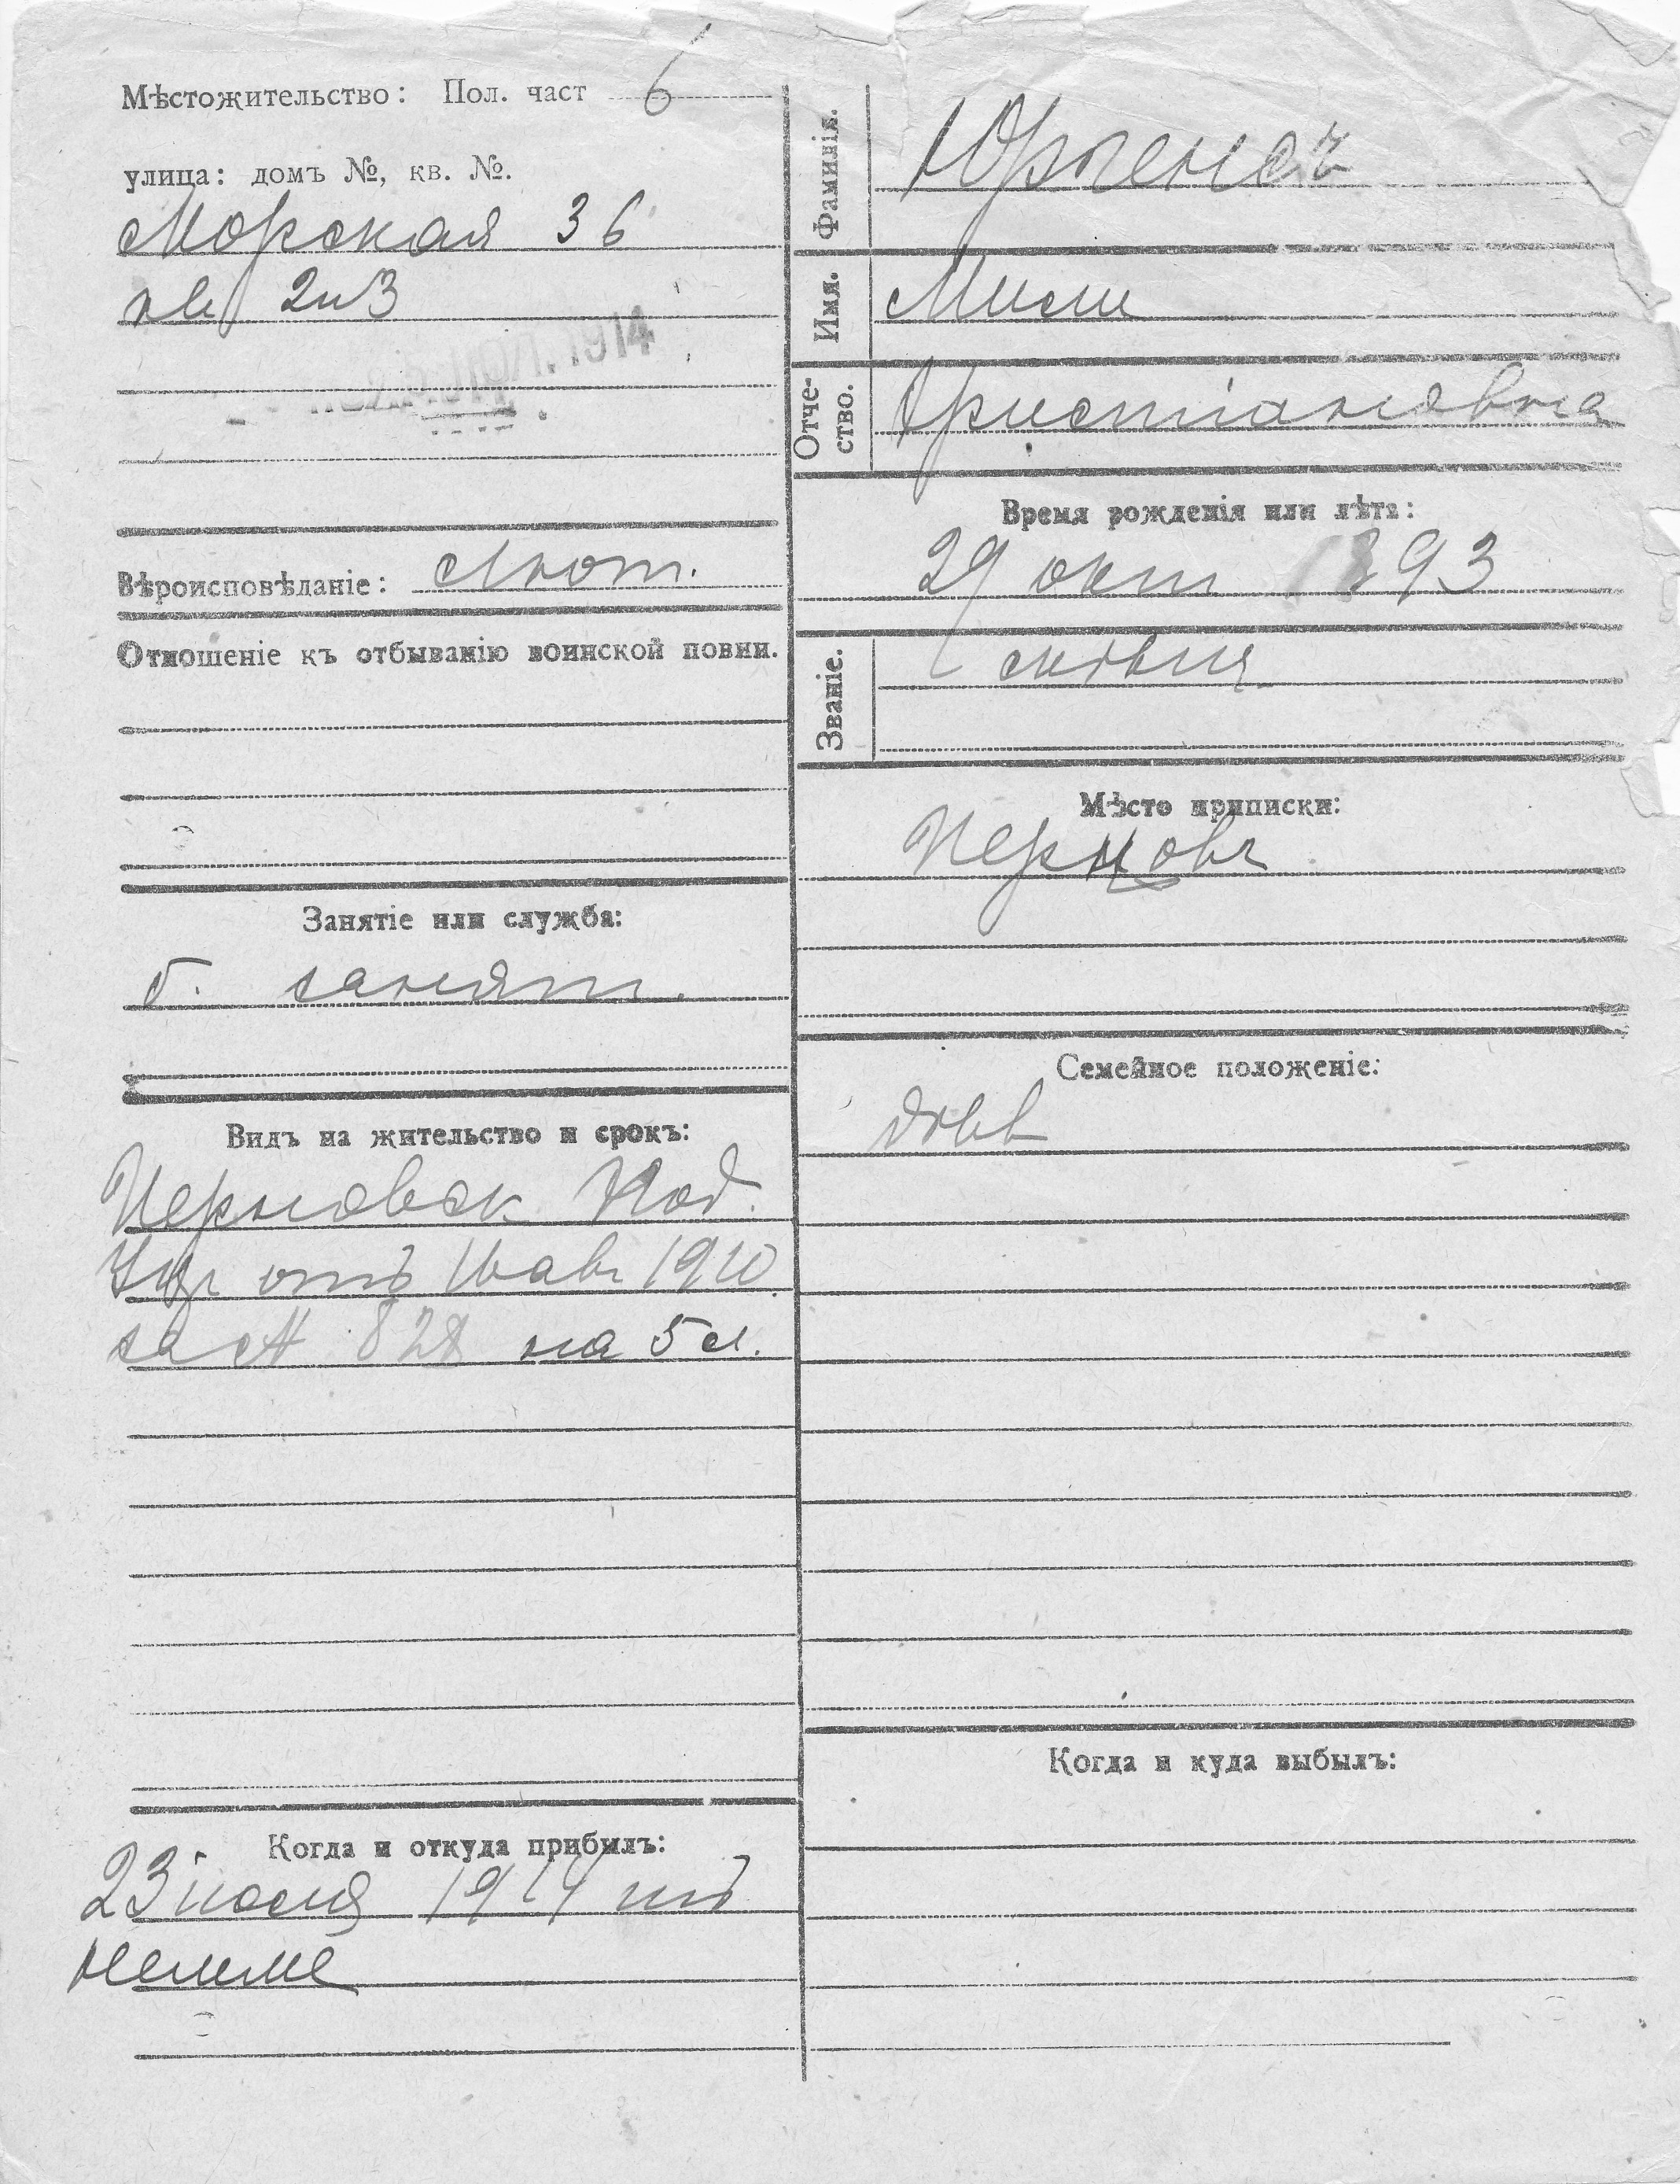 Мѣстожительство: Пол. част 6
улица: домъ №, кв. №.
Морская 36
кв 2и3
1914
Вѣроисповѣданіе: Лют.
Отношеніе къ отбыванію воинской повин.
Занятіе или служба:
б. занят.
Видъ на жительство и срокъ:
Перновск Под.
Упр отъ 16 авг 1910
за № 828 на 5 л.
Когда и откуда прибылъ:
23 іюля 1914 изъ
Немме
Фамилія. Юргенсъ
Имя.
Отче-
ство. Христіановна
Время рожденія или лѣта:
29 окт 1893
Званіе.
Мѣсто приписки:
Перновъ
Семейное положеніе:
дѣв
Когда и куда выбылъ: